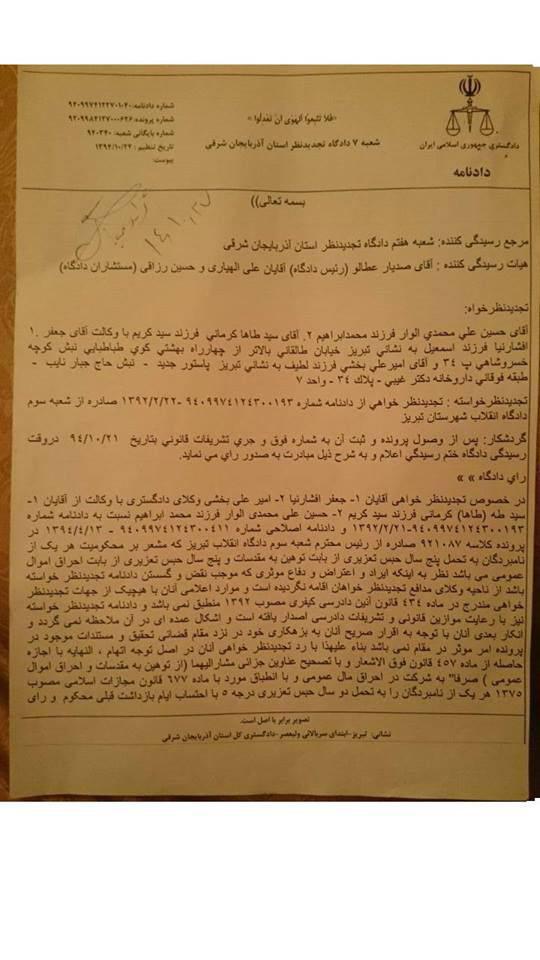 «فَلا تَتَّبِعُوا الْهَوى اَنْ تَعْدِلُوا»
شعبه ۷ دادگاه تجدیدنظر استان آذربایجان شرقی
دادگستری جمهوری اسلامی ایران
دادنامه
شماره دادنامه: ۹۴۰۹۹۷۴۱۲۲۷۰۱۰۴۰
شماره پرونده: ۹۲۰۹۹۸۴۱۳۷۰۰۰۶۲۶
شماره بایگانی شعبه: ۹۴۰۳۴۰
تاریخ تنظیم: ۱۳۹۴/۱۰/۲۲
پیوست:
بسمه تعالی))
مرجع رسیدگی کننده: شعبه هفتم دادگاه تجدیدنظر استان آذربایجان شرقی
هیات رسیدگی کننده : آقای صدیار عطالو (رئیس دادگاه) آقایان علی الهیاری و حسین رزاقی (مستشاران دادگاه)
تجدیدنظرخواه:
آقای حسین علی محمدی الوار فرزند محمدابراهیم ۲. آقای سید طاها کرماني فرزند سید کریم با وکالت آقای جعفر ۱.
افشارنیا فرزند اسمعیل به نشاني تبریز خیابان طالقاني بالاتر از چهارراه بهشتي کوي طباطبایي نبش کوچه
خسروشاهي پ ۳۴ و آقای امیرعلي بخشي فرزند لطیف به نشاني تبریز پاستور جدید - نبش حاج جبار نایب -
طبقه فوقاني داروخانه دکتر غیبي - پلاك ۳۴ - واحد ۷
تجدیدنظرخواسته : تجدیدنظر خواهي از دادنامه شماره ۹۴۰۹۹۷۴۱۲۴۳۰۰۱۹۳ -۱۳۹۲/۲/۲۲ صادره از شعبه سوم
دادگاه انقلاب شهرستان تبریز
گردشکار: پس از وصول پرونده و ثبت آن به شماره فوق و جري تشریفات قانوني بتاریخ ۹۴/۱۰/۲۱ دروقت
رسیدگي دادگاه ختم رسیدگي اعلام و به شرح ذیل مبادرت به صدور راي مي نماید.
رای دادگاه » »
در خصوص تجدیدنظر خواهی آقایان ۱- جعفر افشارنیا ۲- امیر علی بخشی وکلای دادگستری با وکالت از آقایان ۱-
سید طه (طاها) کرمانی فرزند سید کریم ۲- حسین علی محمدی الوار فرزند محمد ابراهیم نسبت به دادنامه شماره
۹۴۰۹۹۷۴۱۲۴۳۰۰۱۹۳-۱۳۹۲/۲/۲۱ و دادنامه اصلاحی شماره ۹۴۰۹۹۷۴۱۲۴۳۰۰۴۱۱ - ۱۳۹۴/۴/۱۳ در
پرونده کلاسه ۹۲۱۰۸۷ صادره از رئیس محترم شعبه سوم دادگاه انقلاب تبریز که مشعر بر محکومیت هر یک از
نامبردگان به تحمل پنج سال حبس تعزیری از بابت توهین به مقدسات و پنج سال حبس تعزیری از بابت احراق اموال
عمومی می باشد نظر به اینکه ایراد و اعتراض و دفاع موثری که موجب نقض و گسستن دادنامه تجدیدنظر خواسته
باشد از ناحیه وکلای مدافع تجدیدنظر خواهان اقامه نگردیده است و موارد اعلامی آنان با هیچیک از جهات تجدیدنظر
خواهی مندرج در ماده ۴۳۴ قانون آئین دادرسی کیفری مصوب ۱۳۹۲ منطبق نمی باشد و دادنامه تجدیدنظر خواسته
نیز با رعایت موازین قانونی و تشریفات دادرسی اصدار یافته است و اشکال عمده ای در آن ملاحظه نمی گردد و
انکار بعدی آنان با توجه به اقرار صریح آنان به بزهکاری خود در نزد مقام قضائی تحقیق و مستندات موجود در
پرونده امر موثر در مقام نمی باشد بناء علیهذا با رد تجدیدنظر خواهی آنان در اصل توجه اتهام ، النهایه با اجازه
حاصله از ماده ۴۵۷ قانون فوق الاشعار و با تصحیح عناوین جزائی مشارالیهما (از توهین به مقدسات و احراق اموال
عمومی ) صرفا" به شرکت در احراق مال عمومی و با انطباق مورد با ماده ۶۷۷ قانون مجازات اسلامی مصوب
۱۳۷۵ هر یک از نامبردگان را به تحمل دو سال حبس تعزیری درجه ۵ با احتساب ایام بازداشت قبلی محکوم و رای
تصویر برابر با اصل است.
نشانی: تبریز-ابتدای سربالائی ولیعصر-دادگستری کل استان آذربایجان شرقی